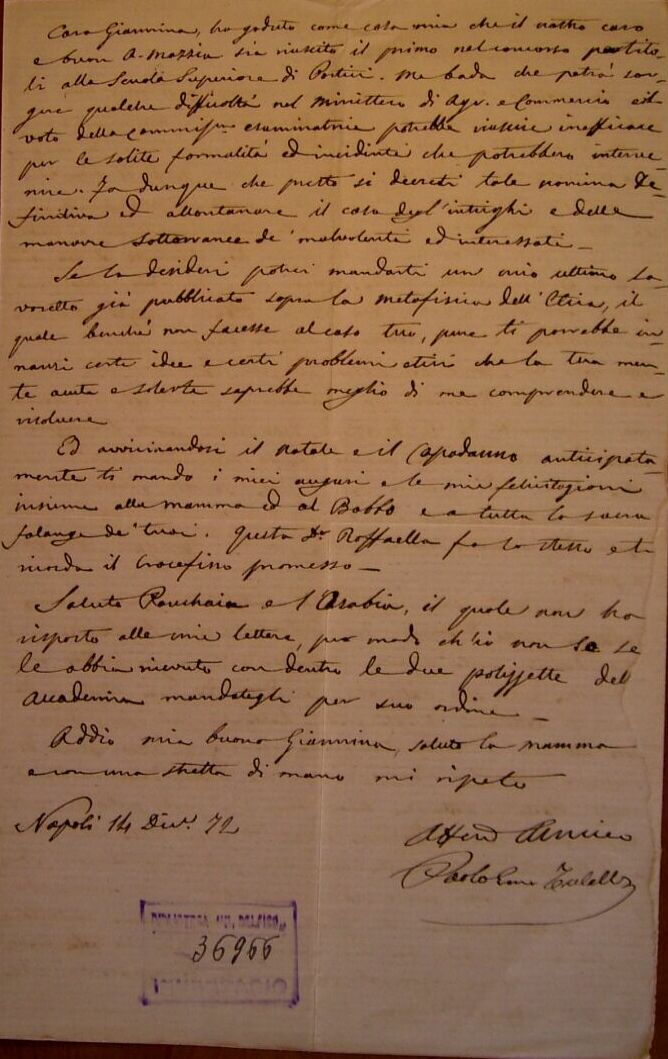 Cara Giannina, ho goduto come cosa mia che il nostro caro
e buon A. Mazzia sia riuscito il primo nel concorso
li alla Scuola Superiore di Portici. Ma bada che potrà sor-
gere qualche difficoltà nel Ministero di Agr. e Commercio e il
voto della Commissne esaminatrice potrebbe riuscire inefficace
per le solite formalità ed incidenti che potrebbero interve-
nire. Fa dunque che presto si decreti tale nomina de-
finitiva ed allontanare il caso degl'intrighi e delle
manovre sotterranee de' malvolenti ed interessati.—
Se la desideri potrei mandarti un mio ultimo la-
voretto già pubblicato sopra la metafisica dell'Etica, il
quale benché non facesse al caso tuo, pure ti porrebbe in-
nanzi certe idee e certi problemi etici che la tua men-
te acuta e solerte saprebbe meglio di me comprendere e
risolvere
Ed avvicinandosi il Natale e il Capodanno anticipata-
mente ti mando i miei auguri e le mie felicitazioni
insieme alla mamma ed al Babbo e a tutta la sacra
falange de' tuoi. Questa Da. Raffaella fa lo stesso e ti
ricorda il Crocefisso promesso—
Saluta e l'Arabia, il quale non ha
risposto alle mie lettere, per modo ch'io non so se
le abbia ricevute con dentro le due polizzette del
Accademia mandategli per suo ordine—
Addio mia buona Giannina, saluta la mamma
e con una stretta di mano mi ripeto
Napoli 14 Dic. 72
Amico
Paolo Tulelli
BIBLIOTECA "M. DELFICO"
36966